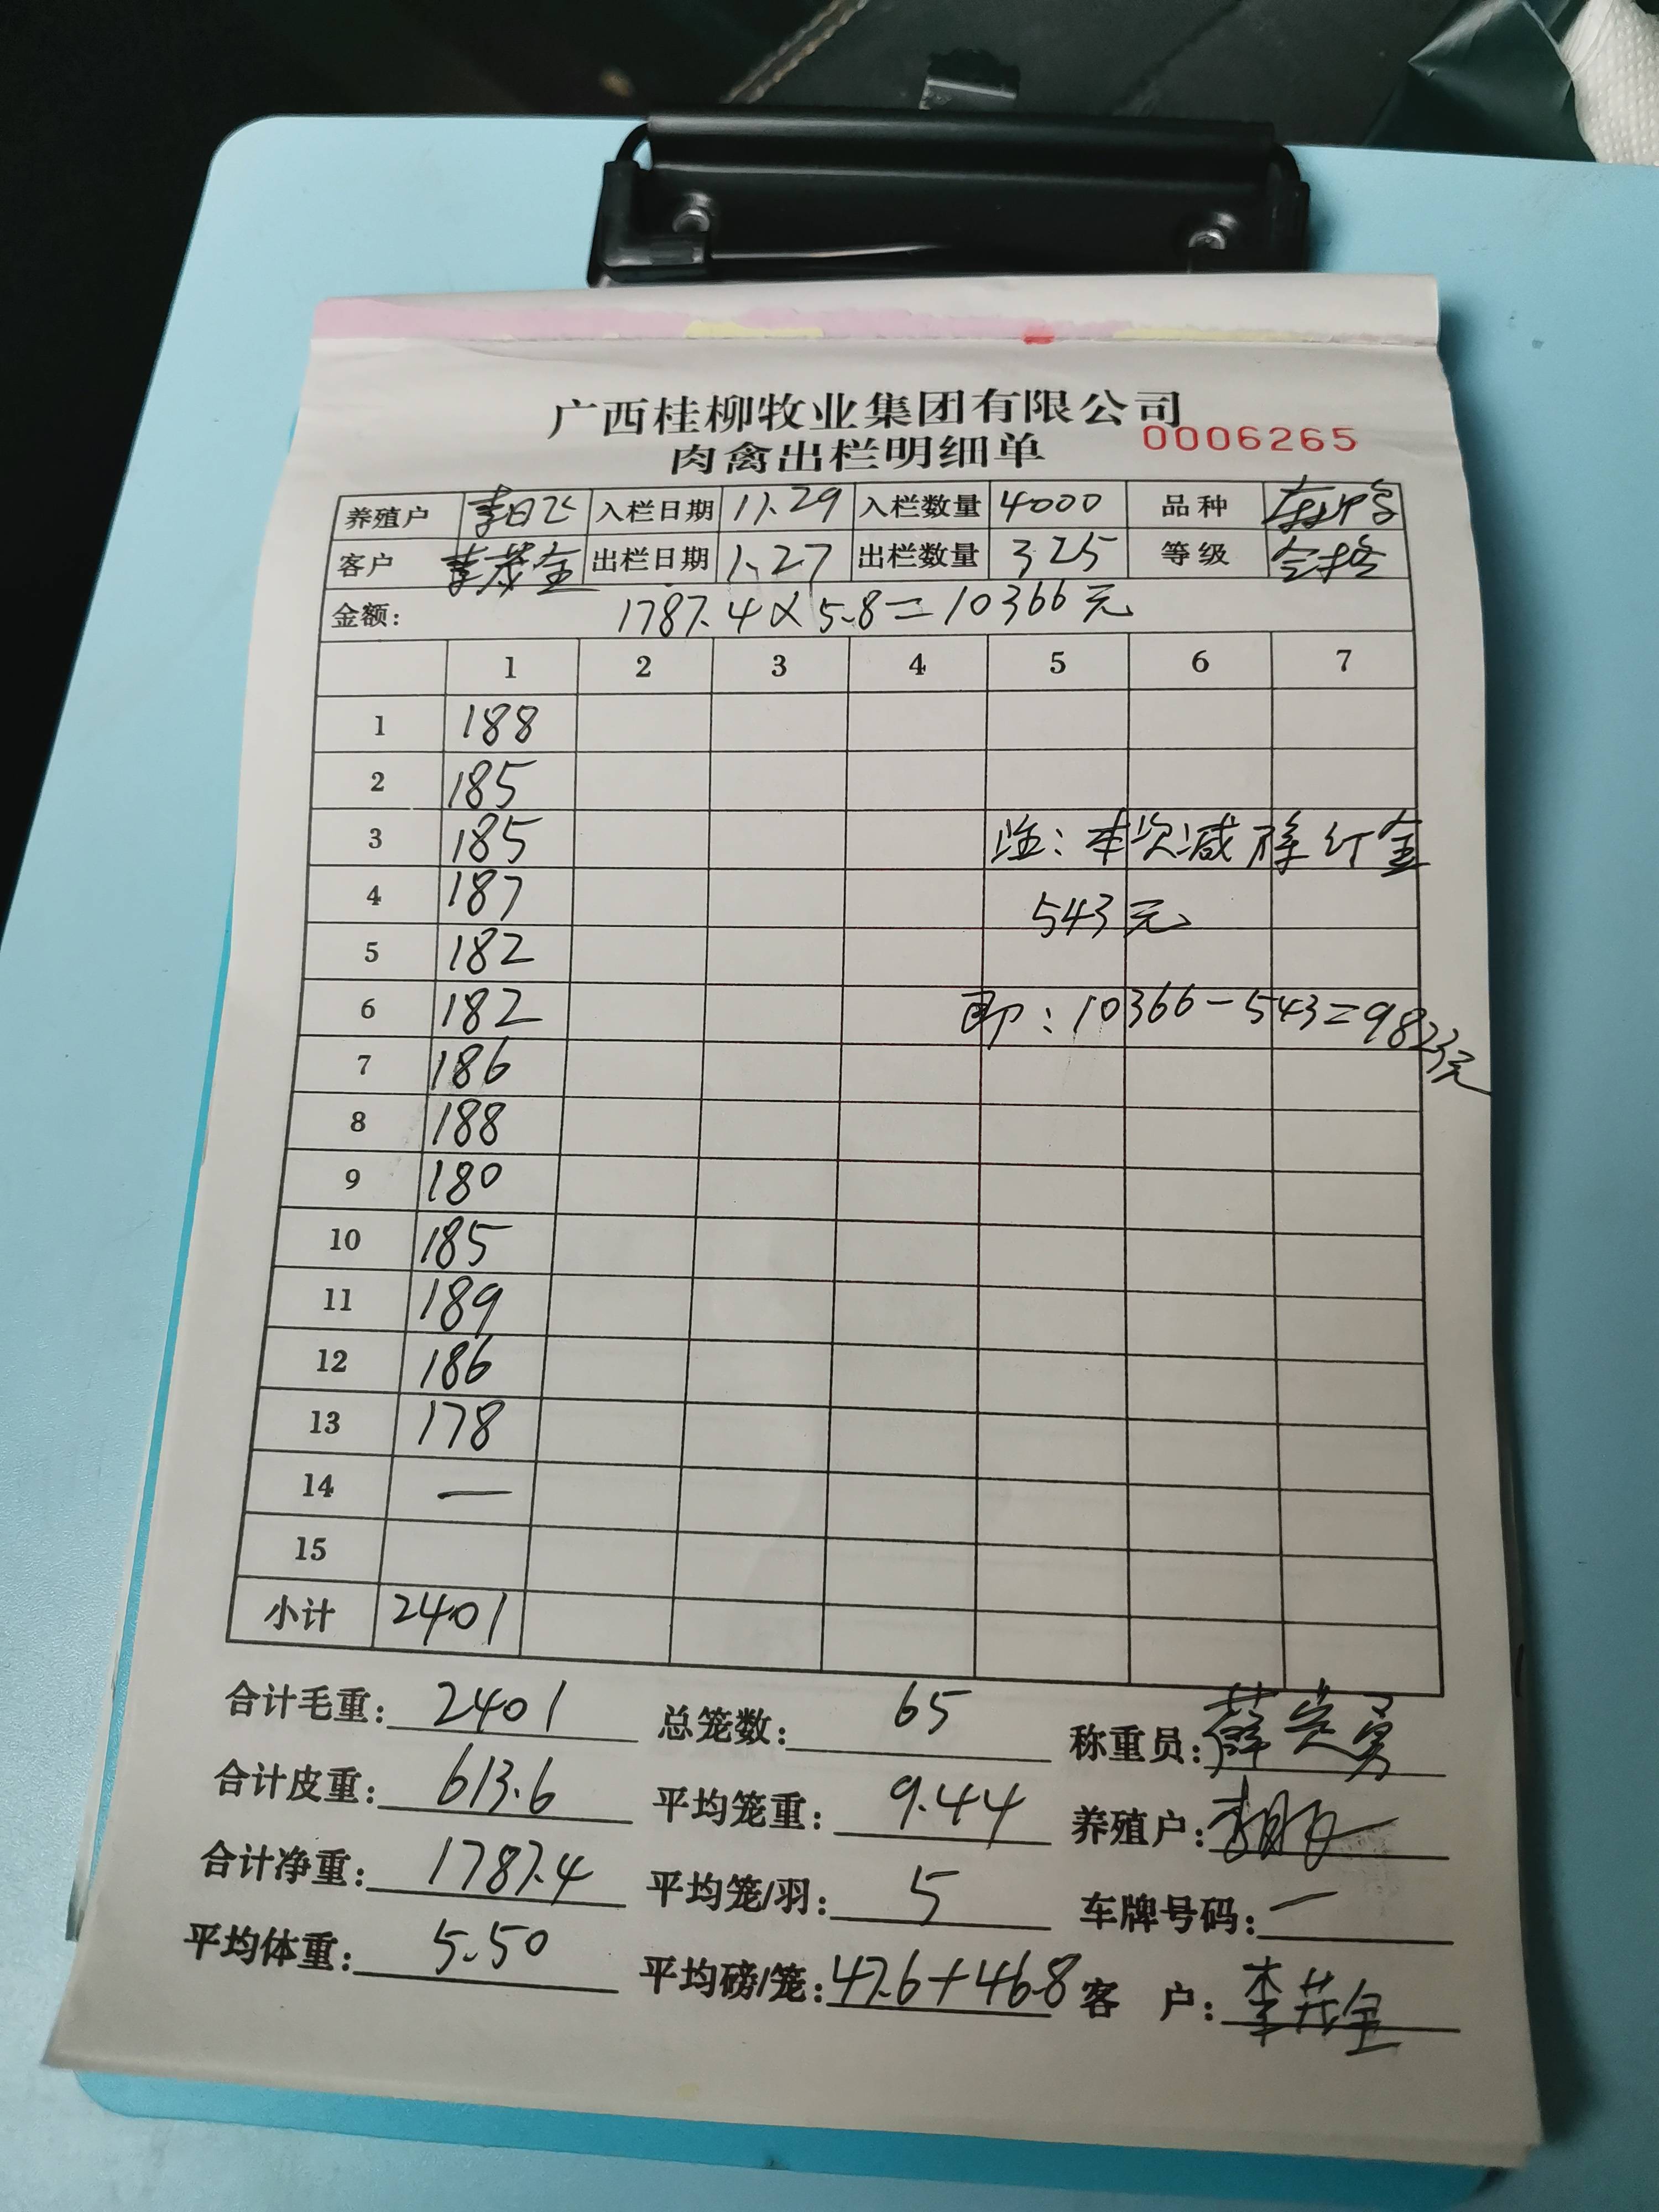 广西桂柳牧业集团有限公司
肉禽出栏明细单 0006265
养殖户 李日飞 入栏日期 11.29 入栏数量 4000 品种
客户 李茂金 出栏日期 1.27 出栏数量 325 等级 合格
金额: 1787.4×5.8=10366元
1 2 3 4 5 6 7
1 188
2 185
3 185 注:本次减除订金
4 187 543元
5 182
6 182 即:10366-543=9823元
7 186
8 188
9 180
10 185
11 189
12 186
13 178
14 —
15
小计 2401
合计毛重: 2401 总笼数: 65 称重员:
合计皮重: 613.6 平均笼重: 9.44 养殖户:
合计净重: 1787.4 平均笼/羽: 5 车牌号码: —
平均体重: 5.50 平均磅/笼: 47.6+46.8 客 户: 李茂金